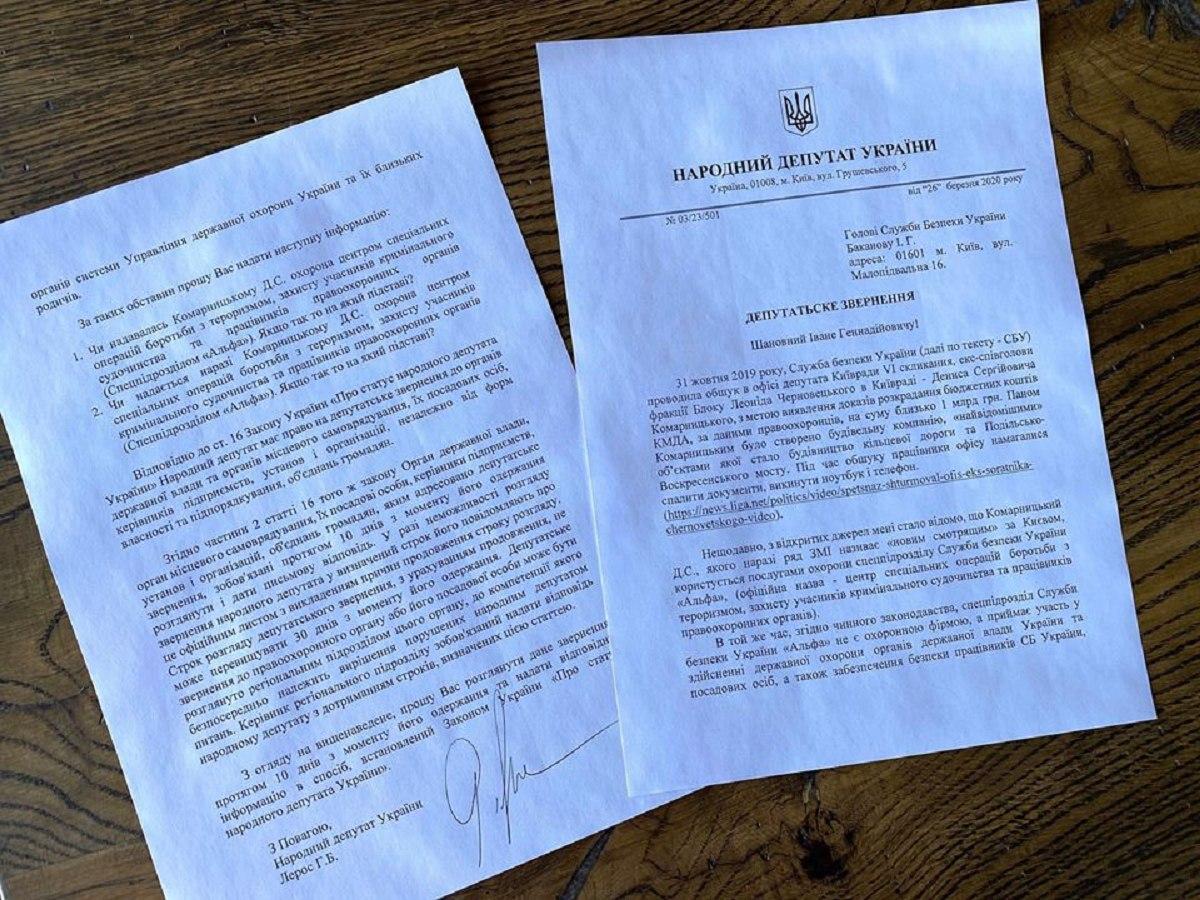 НАРОДНИЙ ДЕПУТАТ УКРАЇНИ
Україна, 01008, м. Київ, вул. Грушевського, 5
№ 03/23/501
від "26" березня 2020 року
Голові Служби Безпеки України
Баканову І. Г.
адреса: 01601 м. Київ, вул.
Малопідвальна 16.
ДЕПУТАТЬСКЕ ЗВЕРНЕННЯ
Шановний Іване Геннадійовичу!
31 жовтня 2019 року, Служба безпеки України (далі по тексту - СБУ)
проводила обшук в офісі депутата Київради VI скликання, екс-співголови
фракції Блоку Леоніда Черновецького в Київраді - Дениса Сергійовича
Комарницького, з метою виявлення доказів розкрадання бюджетних коштів
КМДА, за даними правоохоронців, на суму близько 1 млрд грн. Паном
Комарницьким було створено будівельну компанію, «найвідомішими»
об'єктами якої стало будівництво кільцевої дороги та Подільсько-
Воскресенського мосту. Під час обшуку працівники офісу намагалися
спалити документи, викинути ноутбук і телефон.
(https://news.liga.net/politics/video/spetsnaz-shturmoval-ofis-eks-soratnika-
chernovetskogo-video).
Нещодавно, з відкритих джерел мені стало відомо, що Комарницький
Д.С., якого наразі ряд ЗМІ називає «новим смотрящим» за Києвом,
користується послугами охорони спецпідрозділу Служби безпеки України
«Альфа», (офіційна назва - центр спеціальних операцій боротьби з
тероризмом, захисту учасників кримінального судочинства та працівників
правоохоронних органів).
В той же час, згідно чинного законодавства, спецпідрозділ Служби
безпеки України «Альфа» не є охоронною фірмою, а приймає участь у
здійсненні державної охорони органів державної влади України та
посадових осіб, а також забезпечення безпеки працівників СБ України,
органів системи Управління державної охорони України та їх близьких
родичів.
За таких обставин прошу Вас надати наступну інформацію:
1. Чи надавалась Комарницькому Д.С. охорона центром спеціальних
операцій боротьби з тероризмом, захисту учасників кримінального
судочинства та працівників правоохоронних органів
(Спецпідрозділом «Альфа») Якщо так то на якій підставі?
2. Чи надається наразі Комарницькому Д.С. охорона центром
спеціальних операцій боротьби з тероризмом, захисту учасників
кримінального судочинства та працівників правоохоронних органів
(Спецпідрозділом «Альфа»). Якщо так то на який підставі?
Відповідно до ст. 16 Закону України «Про статус народного депутата
України» Народний депутат має право на депутатське звернення до органів
державної влади та органів місцевого самоврядування, їх посадових осіб,
керівників підприємств, установ і організацій, незалежно від форм
власності та підпорядкування, об'єднань громадян.
Згідно частини 2 статті 16 того ж закону Орган державної влади,
орган місцевого самоврядування, їх посадові особи, керівники підприємств,
установ і організацій, об'єднань громадян, яким адресовано депутатське
звернення, зобов'язані протягом 10 днів з моменту його одержання
розглянути і дати письмову відповідь. У разі неможливості розгляду
звернення народного депутата у визначений строк його повідомляють про
це офіційним листом з викладенням причин продовження строку розгляду.
Строк розгляду депутатського звернення, з урахуванням продовження, не
може перевищувати 30 днів з моменту його одержання. Депутатське
звернення до правоохоронного органу або його посадової особи може бути
розглянуто регіональним підрозділом цього органу, до компетенції якого
безпосередньо належить вирішення порушених народним депутатом
питань. Керівник регіонального підрозділу зобов'язаний надати відповідь
народному депутату з дотриманням строків, визначених цією статтею.
З огляду на вищенаведене, прошу Вас розглянути дане звернення
протягом 10 днів з моменту його одержання та надати відповідну
інформацію в спосіб, встановлений Законом України «Про статус
народного депутата України».
З Повагою,
Народний депутат України
Лерос Г.Б.